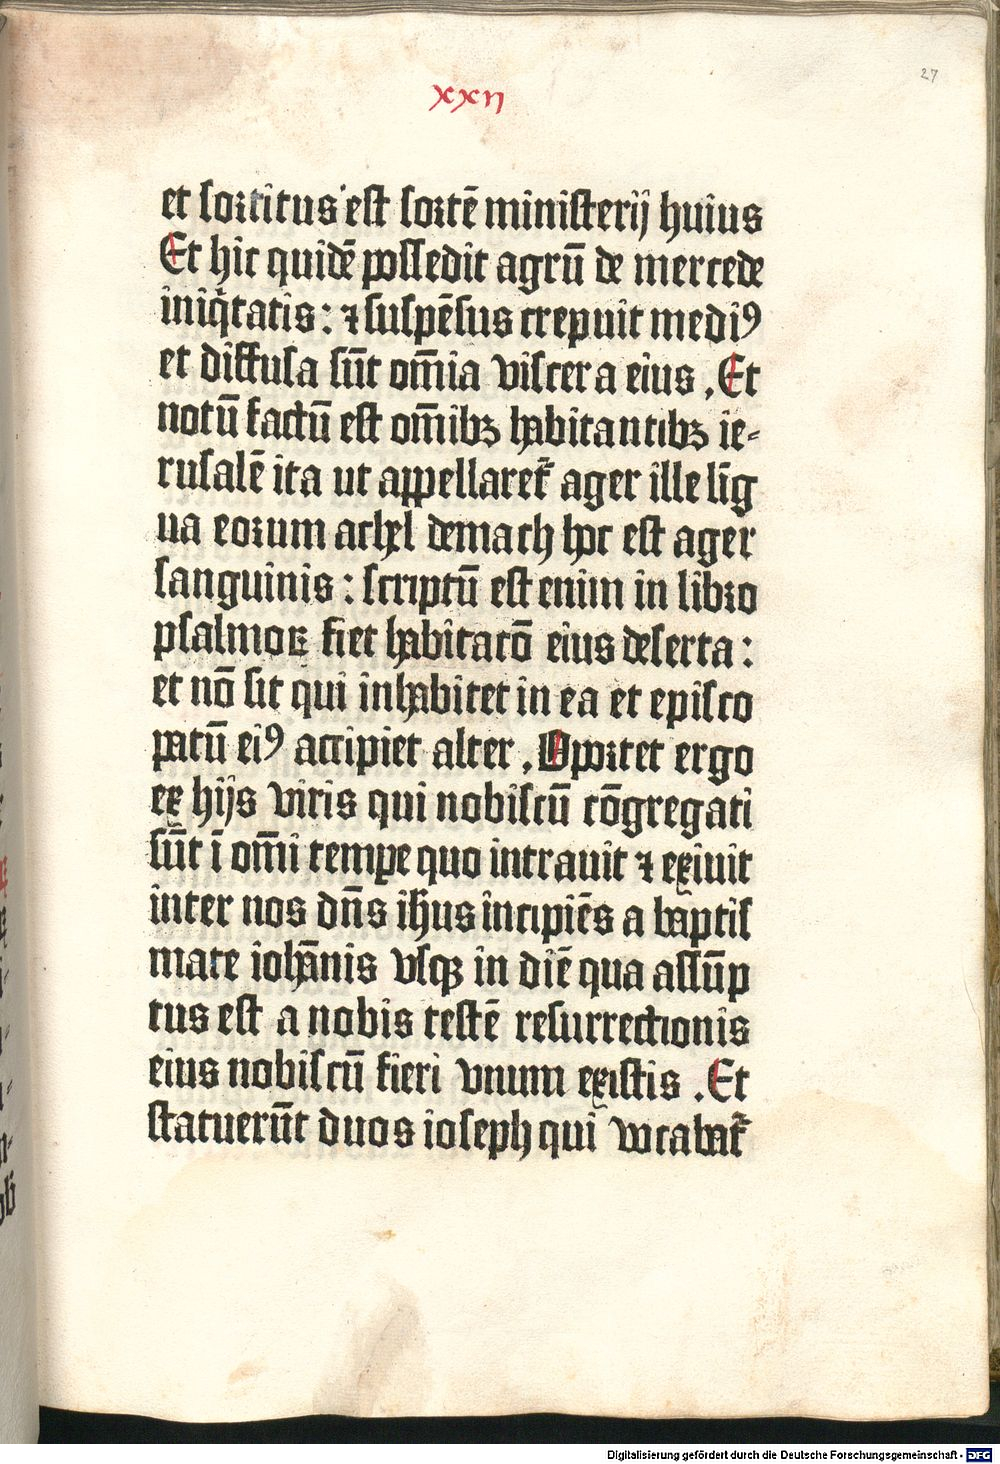 27
xxii
et sortitus est sortē ministerij huius
Et hic quidē possedit agrū de mercede
iniq̈tatis: ⁊ suspēsus crepuit mediꝰ
et diffusa sūt om̄ia viscera eius . Et
notū factū est om̄ibꝫ habitantibꝫ ie-
rusalē ita ut appellaret᷑ ager ille līg
ua eorum achel demach hoc est ager
sanguinis : scriptū est enim in libro
psalmoꝝ fiet habitacō eius deserta :
et nō sit qui inhabitet in ea et episco
patū eiꝰ accipiet alter . Oportet ergo
ex hijs viris qui nobiscū cōgregati
sūt ī om̄i tempe quo intrauit ⁊ exiuit
inter nos dn̄s ih̄us incipiēs a baptis
mate ioh̄anis vsqꝫ in diē qua assūp
tus est a nobis testē resurrectionis
eius nobiscū fieri vnum existis . Et
statuerūt duos ioseph qui vocabat᷑
Digitalisierung gefördert durch die Deutsche Forschungsgemeinschaft - DFG